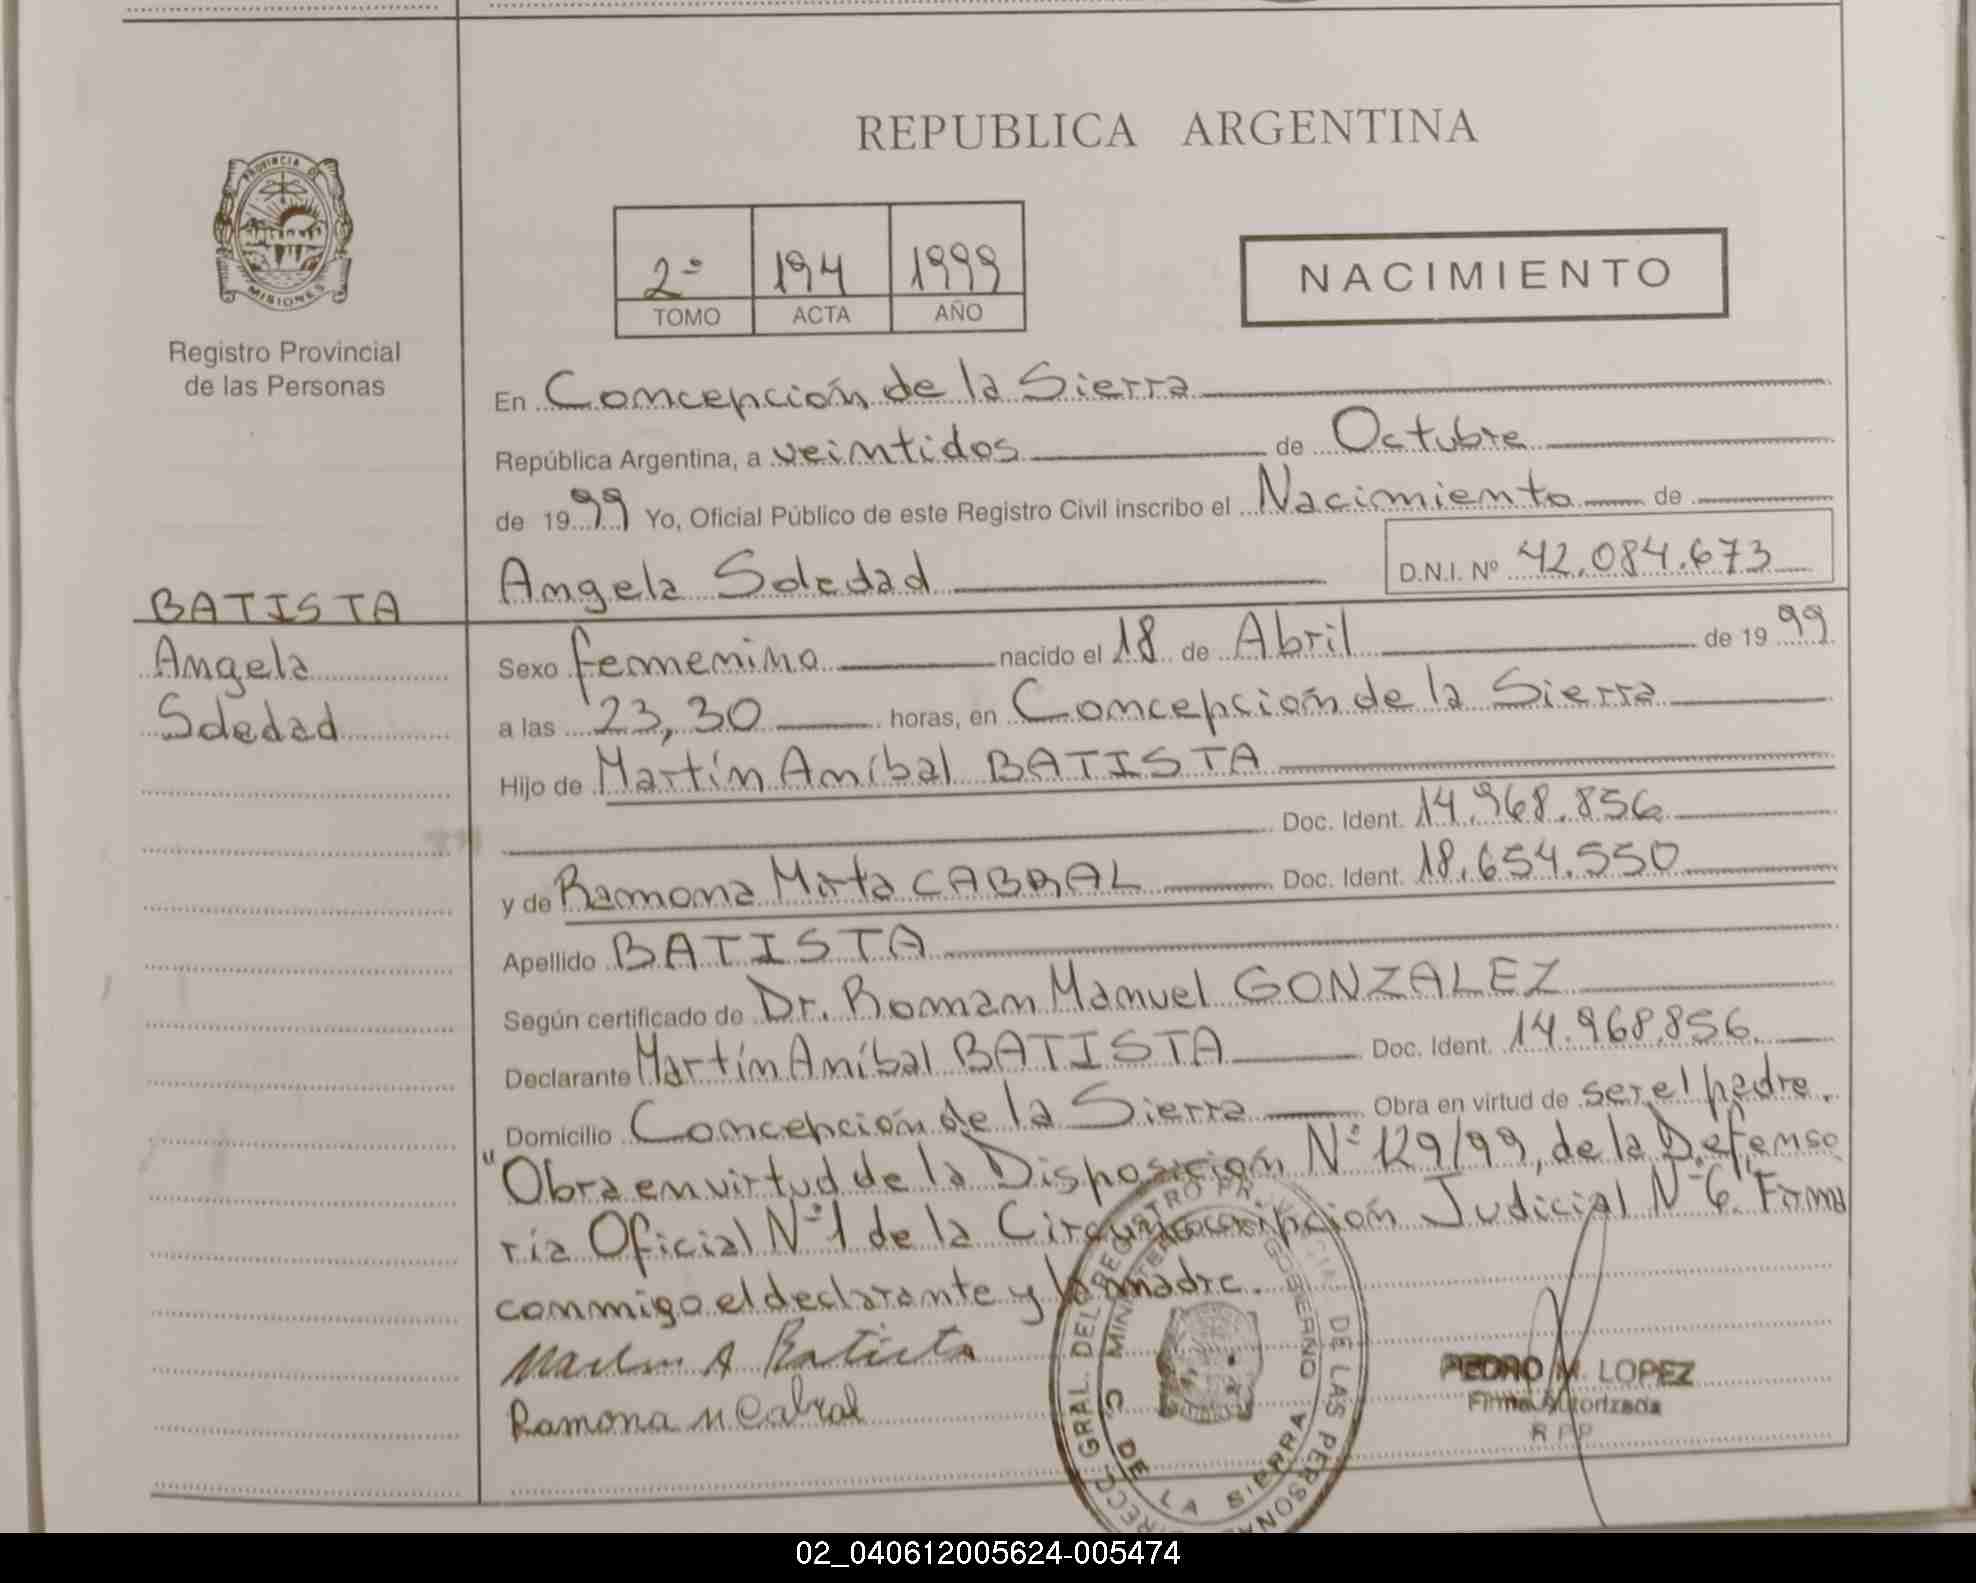 REPUBLICA ARGENTINA
PROVINCIA DE
MISIONES
Registro Provincial
de las Personas
2º 194 1999
TOMO ACTA AÑO
NACIMIENTO
En Concepción de la Sierra
República Argentina, a veintidos de Octubre
de 19 99 Yo, Oficial Público de este Registro Civil inscribo el Nacimiento de
Angela Soledad D.N.I. Nº 42.084.673
BATISTA
Angela
Soledad
Sexo femenino nacido el 18 de Abril de 19 99
a las 23,30 horas, en Concepción de la Sierra
Hijo de Martín Aníbal BATISTA
Doc. Ident. 14.968.856
y de Ramona Mirta CABRAL Doc. Ident. 18.654.550
Apellido BATISTA
Según certificado de Dr. Roman Manuel GONZALEZ
Declarante Martín Aníbal BATISTA Doc. Ident. 14.968.856
Domicilio Concepción de la Sierra Obra en virtud de ser el padre.
"Obra en virtud de la Disposición Nº 129/99, de la Defenso
ría Oficial Nº 1 de la Circunscripción Judicial Nº 6" Firma
conmigo el declarante y la madre.
Martin A Batista
Ramona M Cabral
DIRECC. GRAL. DEL REGISTRO PROVINCIAL DE LAS PERSONAS
MINISTERIO GOBIERNO
C. DE LA SIERRA
PEDRO M. LOPEZ
Firma Autorizada
R P P
02_040612005624-005474